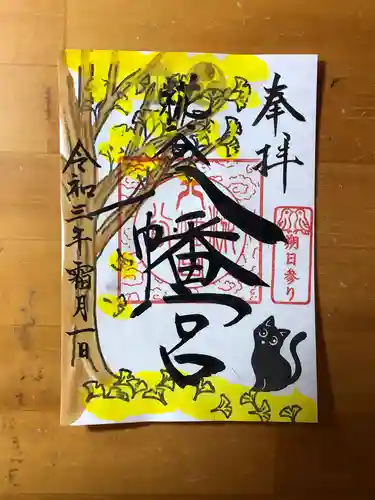 奉拝
八幡宮
朔日参り
令和三年霜月一日